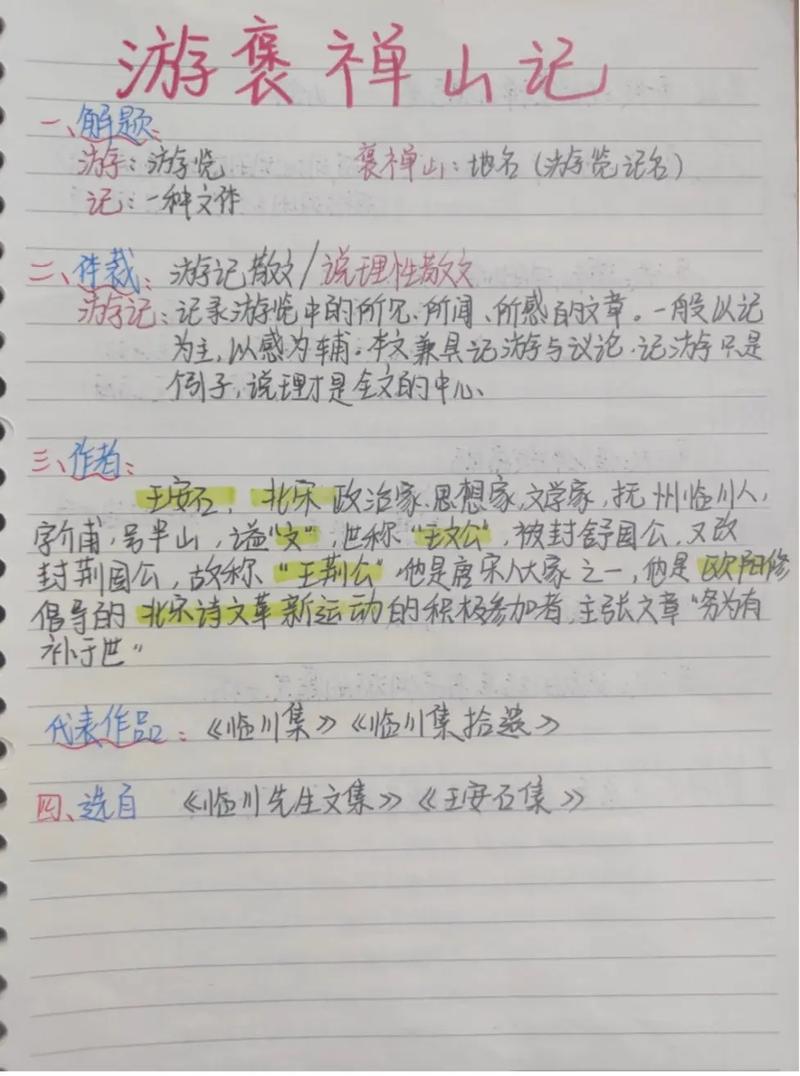 游褒禅山记
一、解题:
游:游览 褒禅山:地名(游览记名)
记:一种文体
二、体裁:游记散文/说理性散文
游记:记录游览中的所见、所闻、所感的文章。一般以记
为主,以感为辅。本文兼具记游与议论.记游只是
例子,说理才是全文的中心、
三、作者:
王安石,北宋政治家.思想家,文学家,抚州临川人,
字介甫,号半山,谥"文",世称"王文公",被封舒国公,又改
封荆国公,故称"王荆公".他是唐宋八大家之一,他是欧阳修
倡导的北宋诗文革新运动的积极参加者,主张文章"务为有
补于世"
代表作品:《临川集》《临川集拾遗》
四、选自 《临川先生文集》《王安石集》